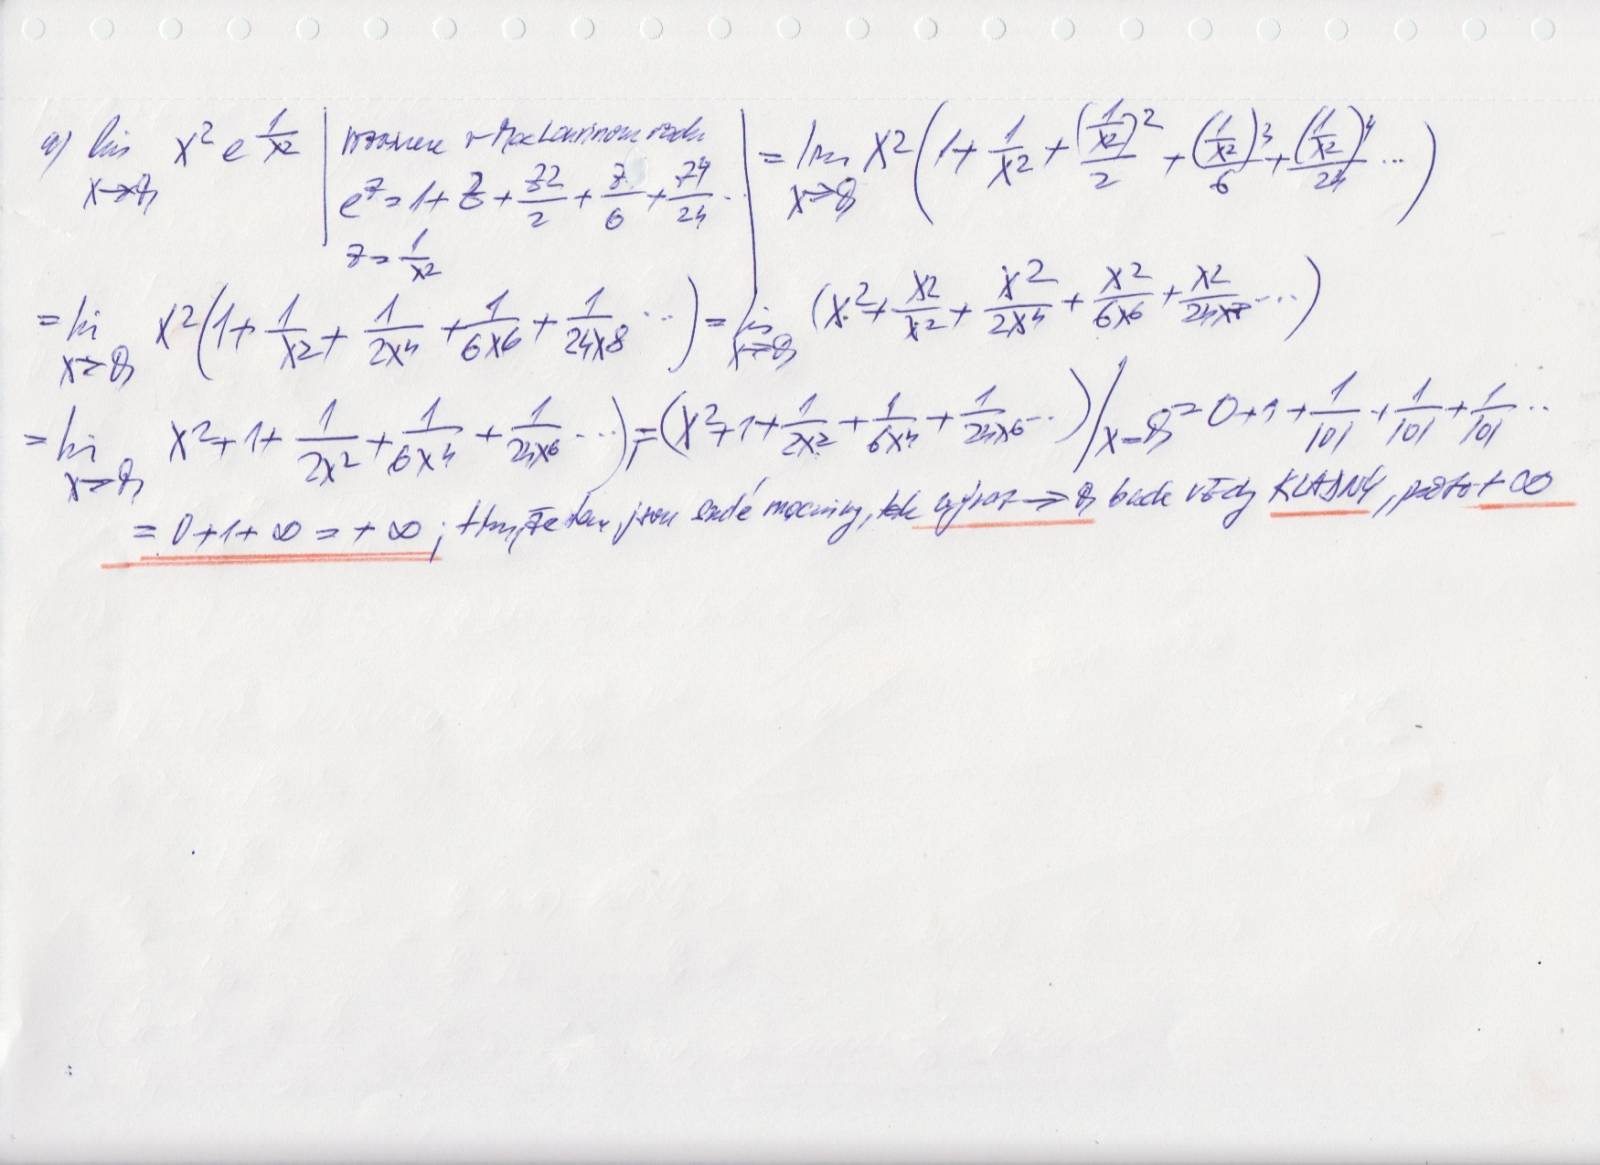 a) lim x→0 x² e^(1/x²) | rozvineme v MacLaurinovu řadu e^z = 1 + z + z²/2 + z/6 + z⁴/24 ... z = 1/x² | = lim x→0 x² (1 + 1/x² + (1/x²)²/2 + (1/x²)³/6 + (1/x²)⁴/24 ...)
= lim x→0 x² (1 + 1/x² + 1/2x⁴ + 1/6x⁶ + 1/24x⁸ ...) = lim x→0 (x² + x²/x² + x²/2x⁴ + x²/6x⁶ + x²/24x⁸ ...)
= lim x→0 x² + 1 + 1/2x² + 1/6x⁴ + 1/24x⁶ ...) = (x² + 1 + 1/2x² + 1/6x⁴ + 1/24x⁶ ...) / x=0 = 0 + 1 + 1/|0| + 1/|0| + 1/|0| ...
= 0 + 1 + ∞ = + ∞ ; jsou sudé mocniny, tak výraz → 0 bude vždy KLADNÝ, proto + ∞